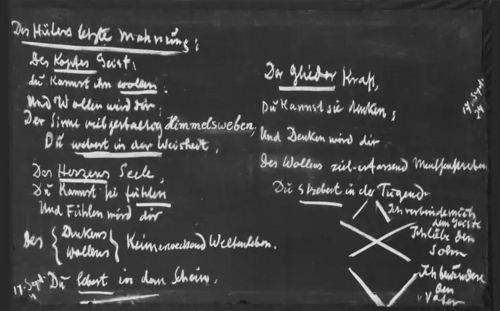 Des Hüters letzte Mahnung:
Des Kopfes Geist,
Du kannst ihn wollen;
Und Wollen wird dir
Der Sinne vielgestaltig Himmelsweben,
Du webest in der Weisheit.
Des Herzens Seele,
Du kannst sie fühlen
Und Fühlen wird dir
Des { Denkens
Wollens } Keimerweckend Weltenleben.
17. Sept. Du lebest in dem Schein.
Der Glieder Kraft,
Du kannst sie denken;
Und Denken wird dir
Des Wollens ziel-erfassend Menschenstreben
Du strebest in der Tugend.
Ich verbinde mich
dem Geiste
Ich lebe dem
Sohn
Ich bewundere
den
Vater